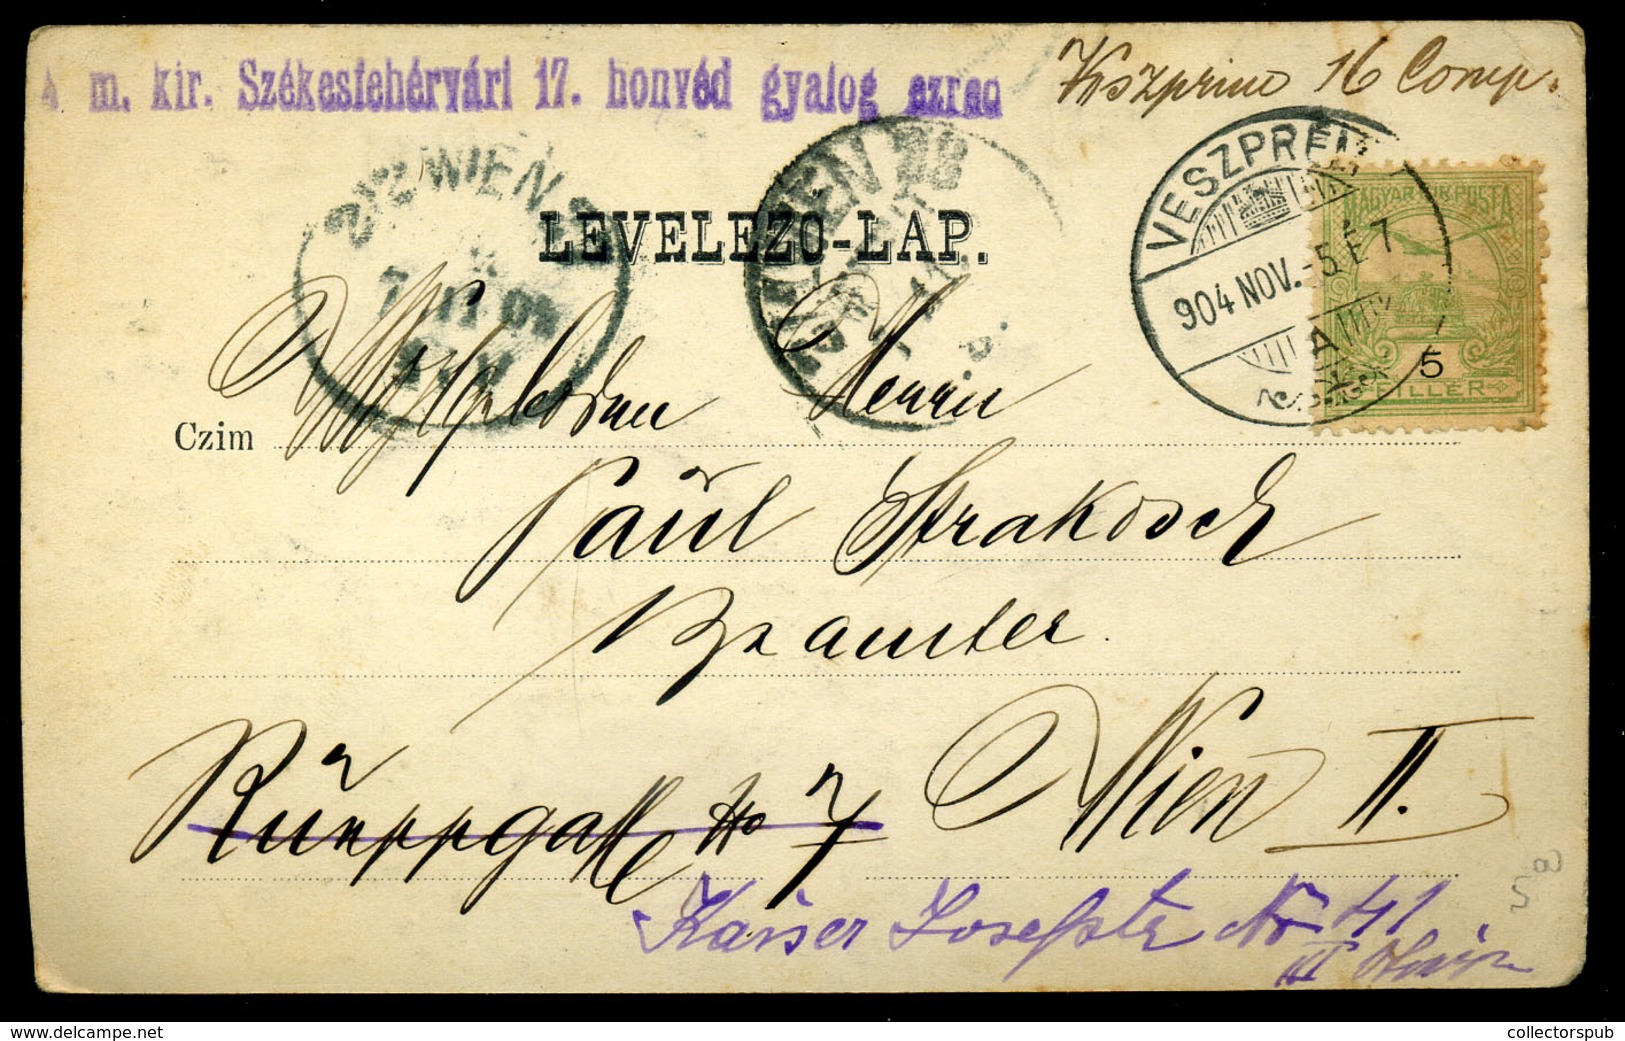 m. kir. Székesfehérvári 17. honvéd gyalog ezred
16 Comp.
VESZPRÉM
904 NOV.-5.E 7
A
MAGYAR KIR. POSTA
5
FILLÉR
2/2 WIEN
LEVELEZŐ-LAP.
Czim Wohlgeboren Herrn
Paul Strakosch
Beamter
Rueppgasse No 7 Wien II.
Kaiser Josefstr No 41
collectorspub